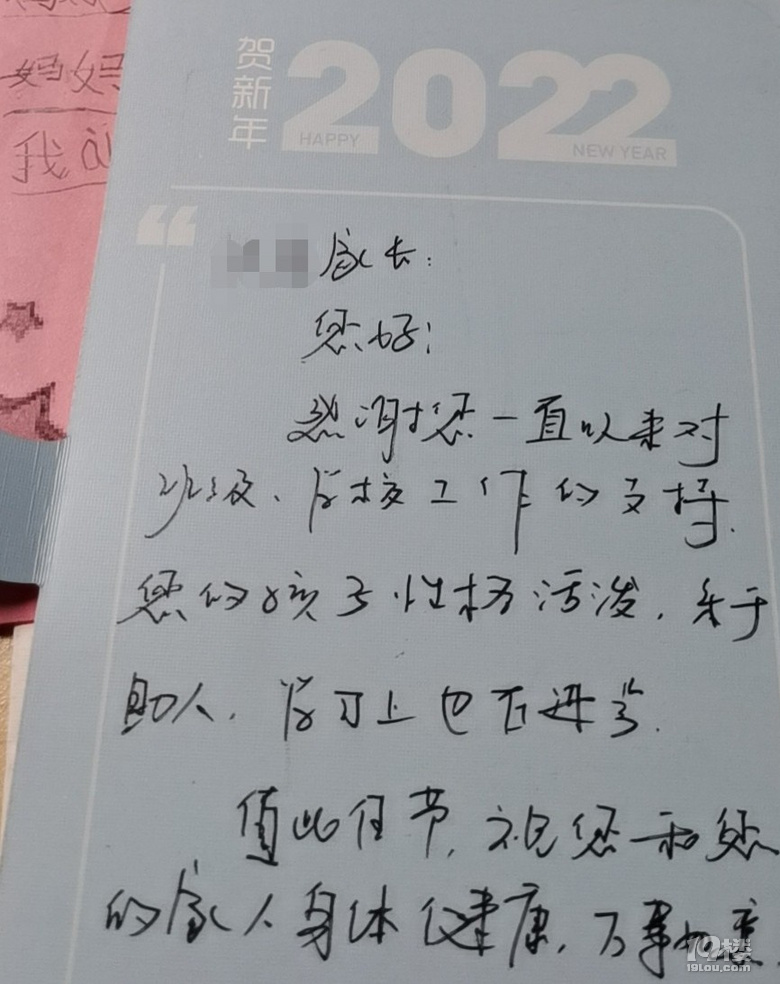 妈妈
我
贺新年
2022
HAPPY
NEW YEAR
家长：
您好：
感谢您一直以来对
班级、学校工作的支持.
您的孩子性格活泼，乐于
助人，学习上也有进步.
值此佳节，祝您和您
的家人身体健康，万事如意.
19楼
19lou.com